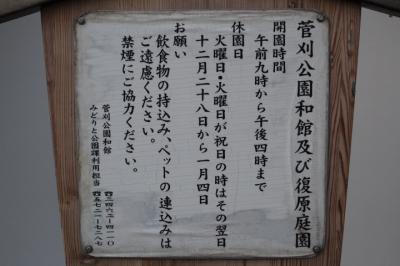 菅刈公園和館及び復原庭園
開園時間
午前九時から午後四時まで
休園日
火曜日・火曜日が祝日の時はその翌日
十二月二十八日から一月四日
お願い
飲食物の持込み、ペットの連込みは
ご遠慮ください。
禁煙にご協力ください。
菅刈公園和館
みどりと公園課利用担当